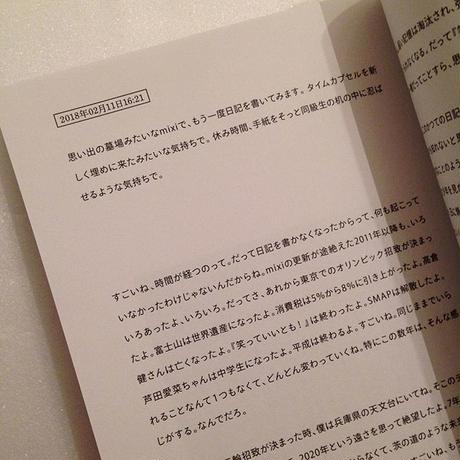 2018年02月11日16:21
思い出の墓場みたいなmixiで、もう一度日記を書いてみます。タイムカプセルを新
しく埋めに来たみたいな気持ちで。休み時間、手紙をそっと同級生の机の中に忍ば
せるような気持ちで。
すごいね、時間が経つのって。だって日記を書かなくなったからって、何も起こって
いなかったわけじゃないんだからね。mixiの更新が途絶えた2011年以降も、いろ
いろあったよ、いろいろ。だってさ、あれから東京でのオリンピック招致が決まっ
たよ。富士山は世界遺産になったよ。消費税は5%から8%に引き上がったよ。高倉
健さんは亡くなったよ。『笑っていいとも!』は終わったよ。SMAPは解散したよ。
芦田愛菜ちゃんは中学生になったよ。平成は終わるよ。すごいね。同じままでいら
れることなんて1つもなくて、どんどん変わっていくね。特にこの数年は、そんな感
じがする。なんでだろ。
招致が決まった時、僕は兵庫県の天文台にいてね。そこの
2020年という遠さを思って絶望したよ。7年